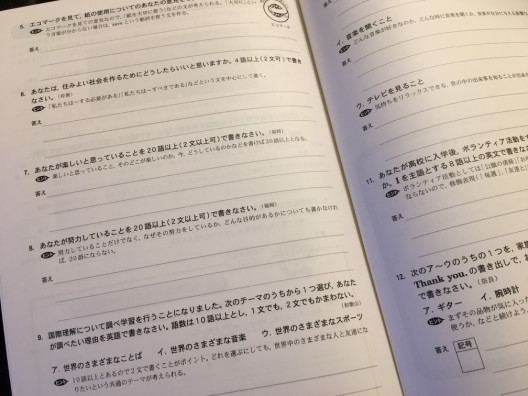 5. エコマークを見て、紙の使用についてのあなたの意見を
ヒント エコマークを見ての意見なので、「紙を大切に使う」などの文が考えられる。「大切に」とい
う言葉が分からない場合は、save という動詞を使う文を作る。
エコマーク
答え
6. あなたは、住みよい社会を作るためにどうしたらいいと思いますか。4語以上(2文可)で書き
なさい。
ヒント 「私たちは~する必要がある」「私たちは~すべきである」などという文を中心にして書く。
答え
7. あなたが楽しいと思っていることを20語以上(2文以上可)で書きなさい。(福岡)
ヒント 楽しいと思っていること、そのどこが楽しいのか、今、どうしているのかなどを書けば20語以上となる。
答え
8. あなたが努力していることを20語以上(2文以上可)で書きなさい。(福岡)
ヒント 努力していることだけでなく、なぜその努力をしているか、どんな目的があるかについても書かなけれ
ば、20語にならない。
答え
9. 国際理解について調べ学習を行うことになりました。次のテーマのうちから1つ選び、あなた
が調べたい理由を英語で書きなさい。語数は10語以上とし、1文でも、2文でもかまわない。
(和歌山)
ア. 世界のさまざまなことば イ. 世界のさまざまな音楽 ウ. 世界のさまざまなスポーツ
ヒント 10語以上とあるので2文で書くことがポイント。どれを選ぶにしても、世界中のさまざまな人と友達にな
りたいという共通のテーマが考えられる。
イ. 音楽を聞くこと
ヒント どんな音楽が好きなのか、どんな時に音楽を聞くか、音楽が
答え
ウ. テレビを見ること
ヒント 気持ちをリラックスできる、世の中の出来事を知ることが出
答え
11. あなたが高校に入学後、ボランティア活動を
か。I を主語とする8語以上の英文で書きな
ヒント ボランティア活動としては「公園の清掃」「お
ならないので、修飾表現(「毎週」、「友達と」
答え
12. 次のア~ウのうちの1つを、家
Thank you. の書き出しで、
で書きなさい。(奈良)
ア. ギター イ. 腕時計
ヒント まずその品物が気に入っ
使うか、などと続けよう。
答え 記号